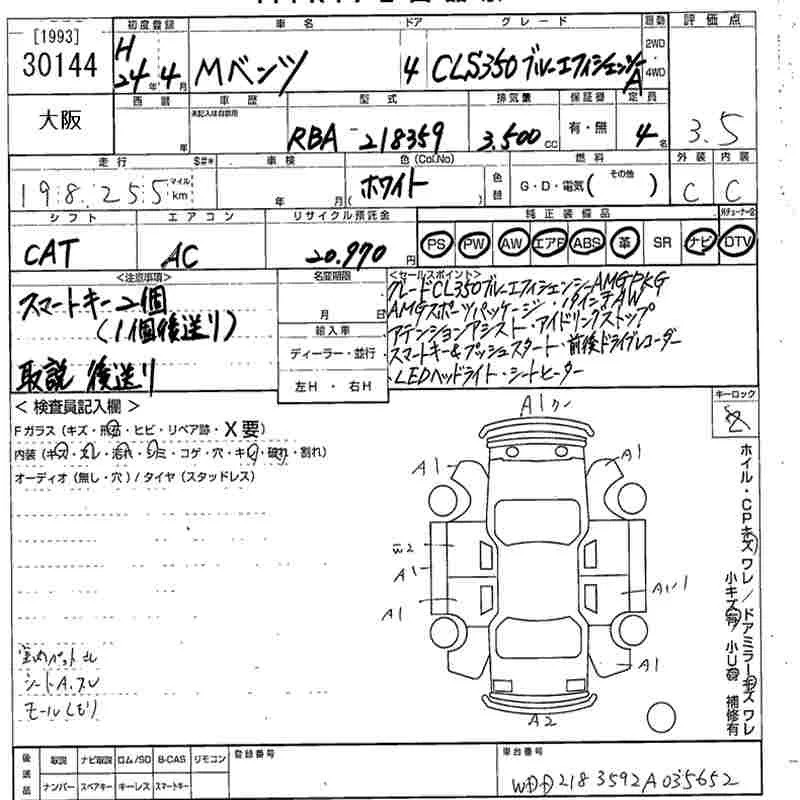 [1993]
30144
大阪
初度登録 車名 ドア グレード 駆動 評価点
H24年4月 Mベンツ 4 CLS350ブルーエフィシェンシーA 2WD 4WD
3.5
西暦 車歴 型式 排気量 保証書 定員
未記入は自家用
年 RBA-218359 3,500cc 有・無 4名
走行 S#* 車検 色(Col.No) 燃料 外装 内装
198,255 マイル km 年 月 ホワイト ( ) 色替 G・D・電気( その他 ) C C
シフト エアコン リサイクル預託金 純正装備品
CAT AC 20,970円 PS PW AW エアB ABS 革 SR ナビ DTV
<注意事項>
スマートキー2個
(1個後送り)
取説 後送り
名変期限
月 日
輸入車
ディーラー・並行
左H・右H
<セールスポイント>
グレードCL350ブルーエフィシェンシーAMGPKG
AMGスポーツパッケージ・19インチAW
・アテンションアシスト・アイドリングストップ
・スマートキー&プッシュスタート・前後ドライブレコーダー
・LEDヘッドライト・シートヒーター
<検査員記入欄>
Fガラス(キズ・飛石・ヒビ・リペア跡・X要)
内装(キズ・スレ・汚れ・シミ・コゲ・穴・キレ・破れ・割れ)
オーディオ(無し・穴)/タイヤ(スタッドレス)
シートA.スレ
モールくもり
キーロック
A1
A1
A1
W2
A1
A1
A1
A1
A2
ホイル・CPキズ ワレ/ドアミラーキズ ワレ
小キズ有 小U有 補修有
後送品
取説 ナビ取説 ロム/SD B-CAS リモコン
ナンバー スペアキー キーレス スマートキー
登録番号
車台番号
WDD2183592A035652